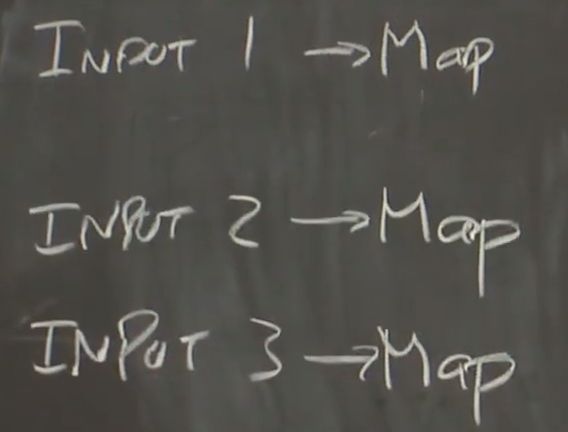 INPUT 1 → Map
INPUT 2 → Map
INPUT 3 → Map